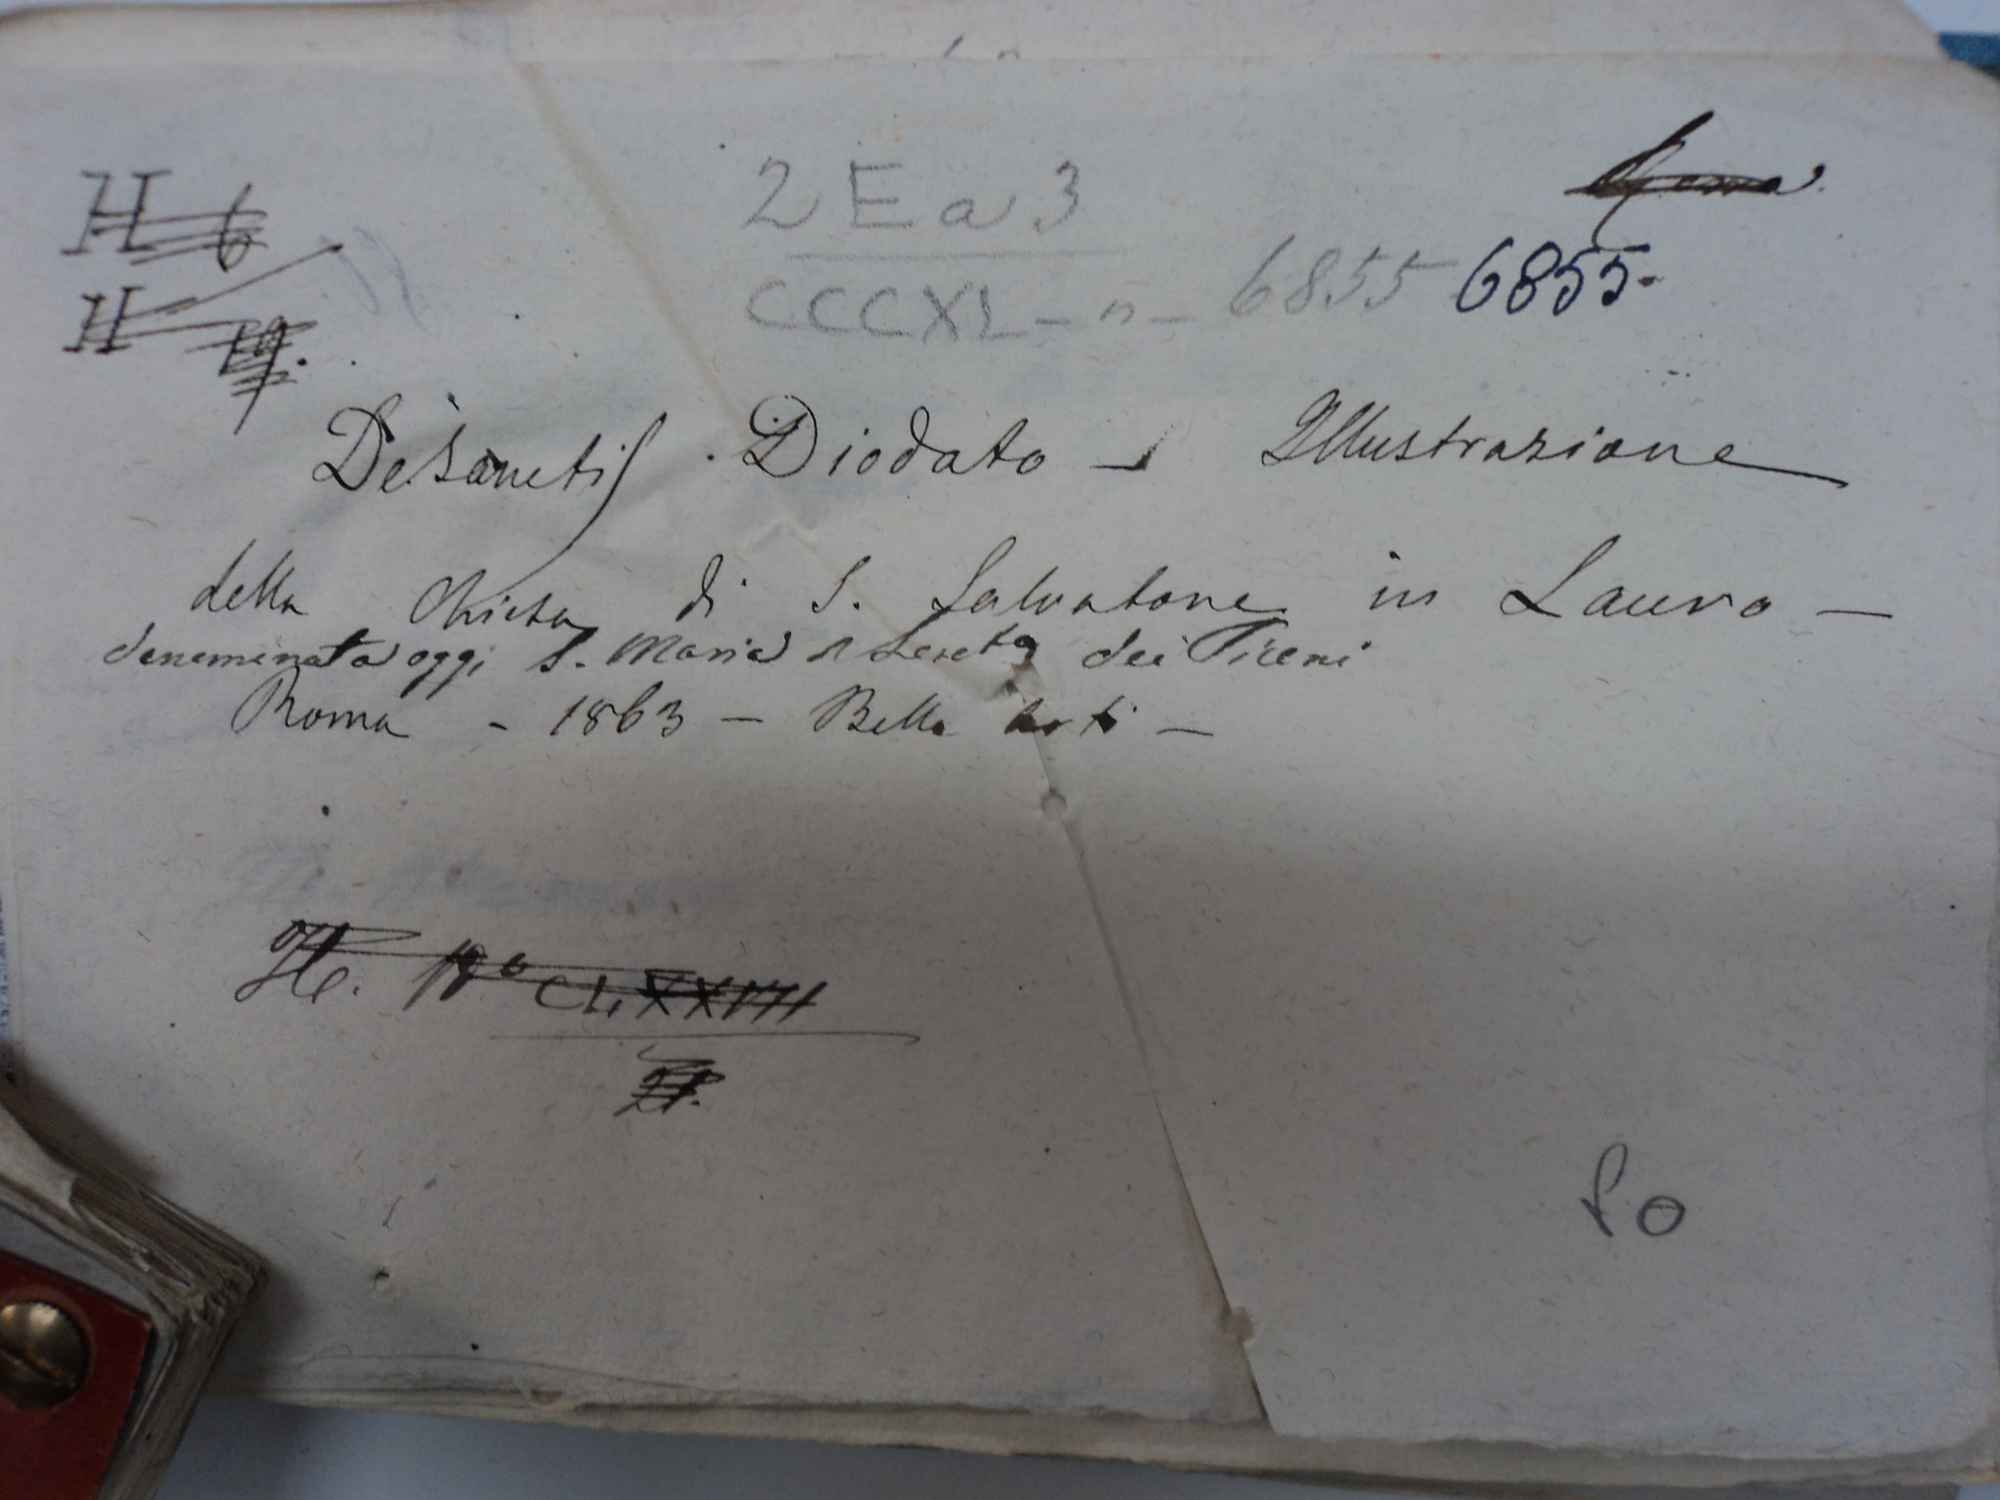 H 6
2 E a 3
H 19.
CCCXL - n - 6855 6855.
DeSanctis. Diodato - Illustrazione
della Chiesa di S. Salvatore in Lauro -
denominata oggi S. Maria di Loreto dei Piceni
Roma - 1863 - Belle Arti -
H. CLXXVIII